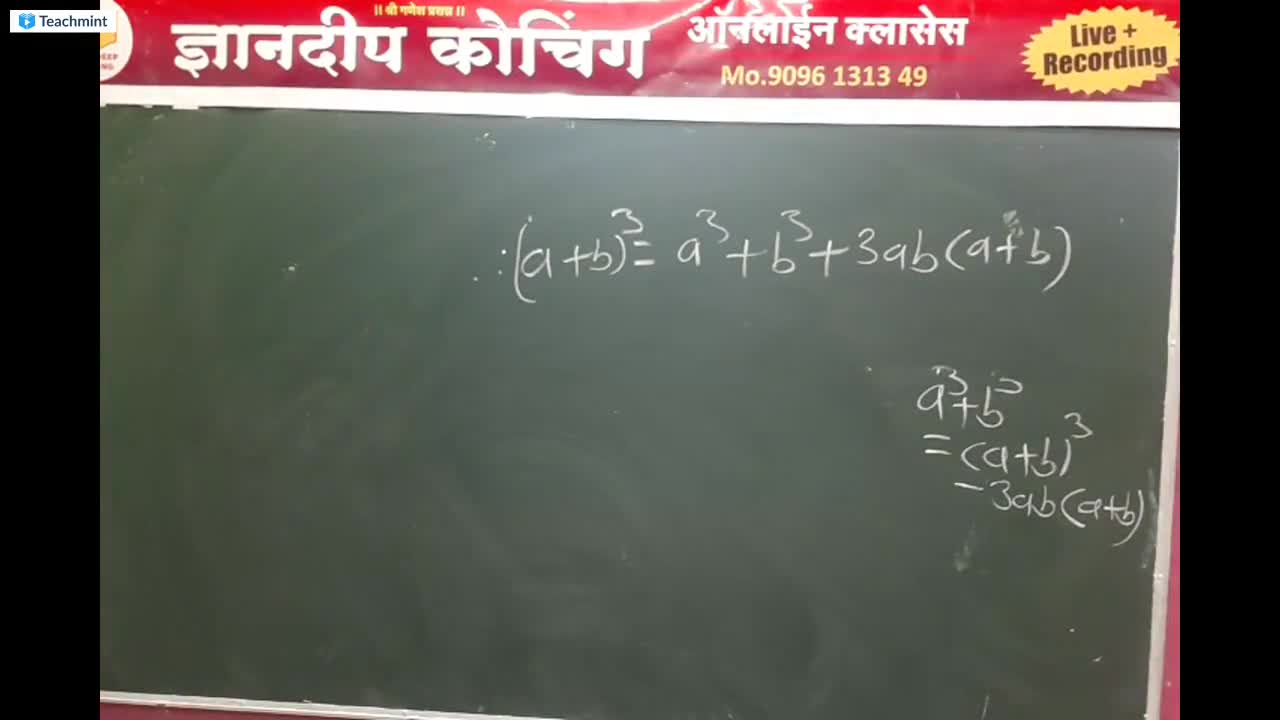 Teachmint
॥ श्री गणेश प्रसन्न ॥
ज्ञानदीप कोचिंग
ऑनलाईन क्लासेस
Mo.9096 1313 49
Live +
Recording
∴ (a+b)³ = a³ + b³ + 3ab(a+b)
a³+b³
= (a+b)³
- 3ab(a+b)